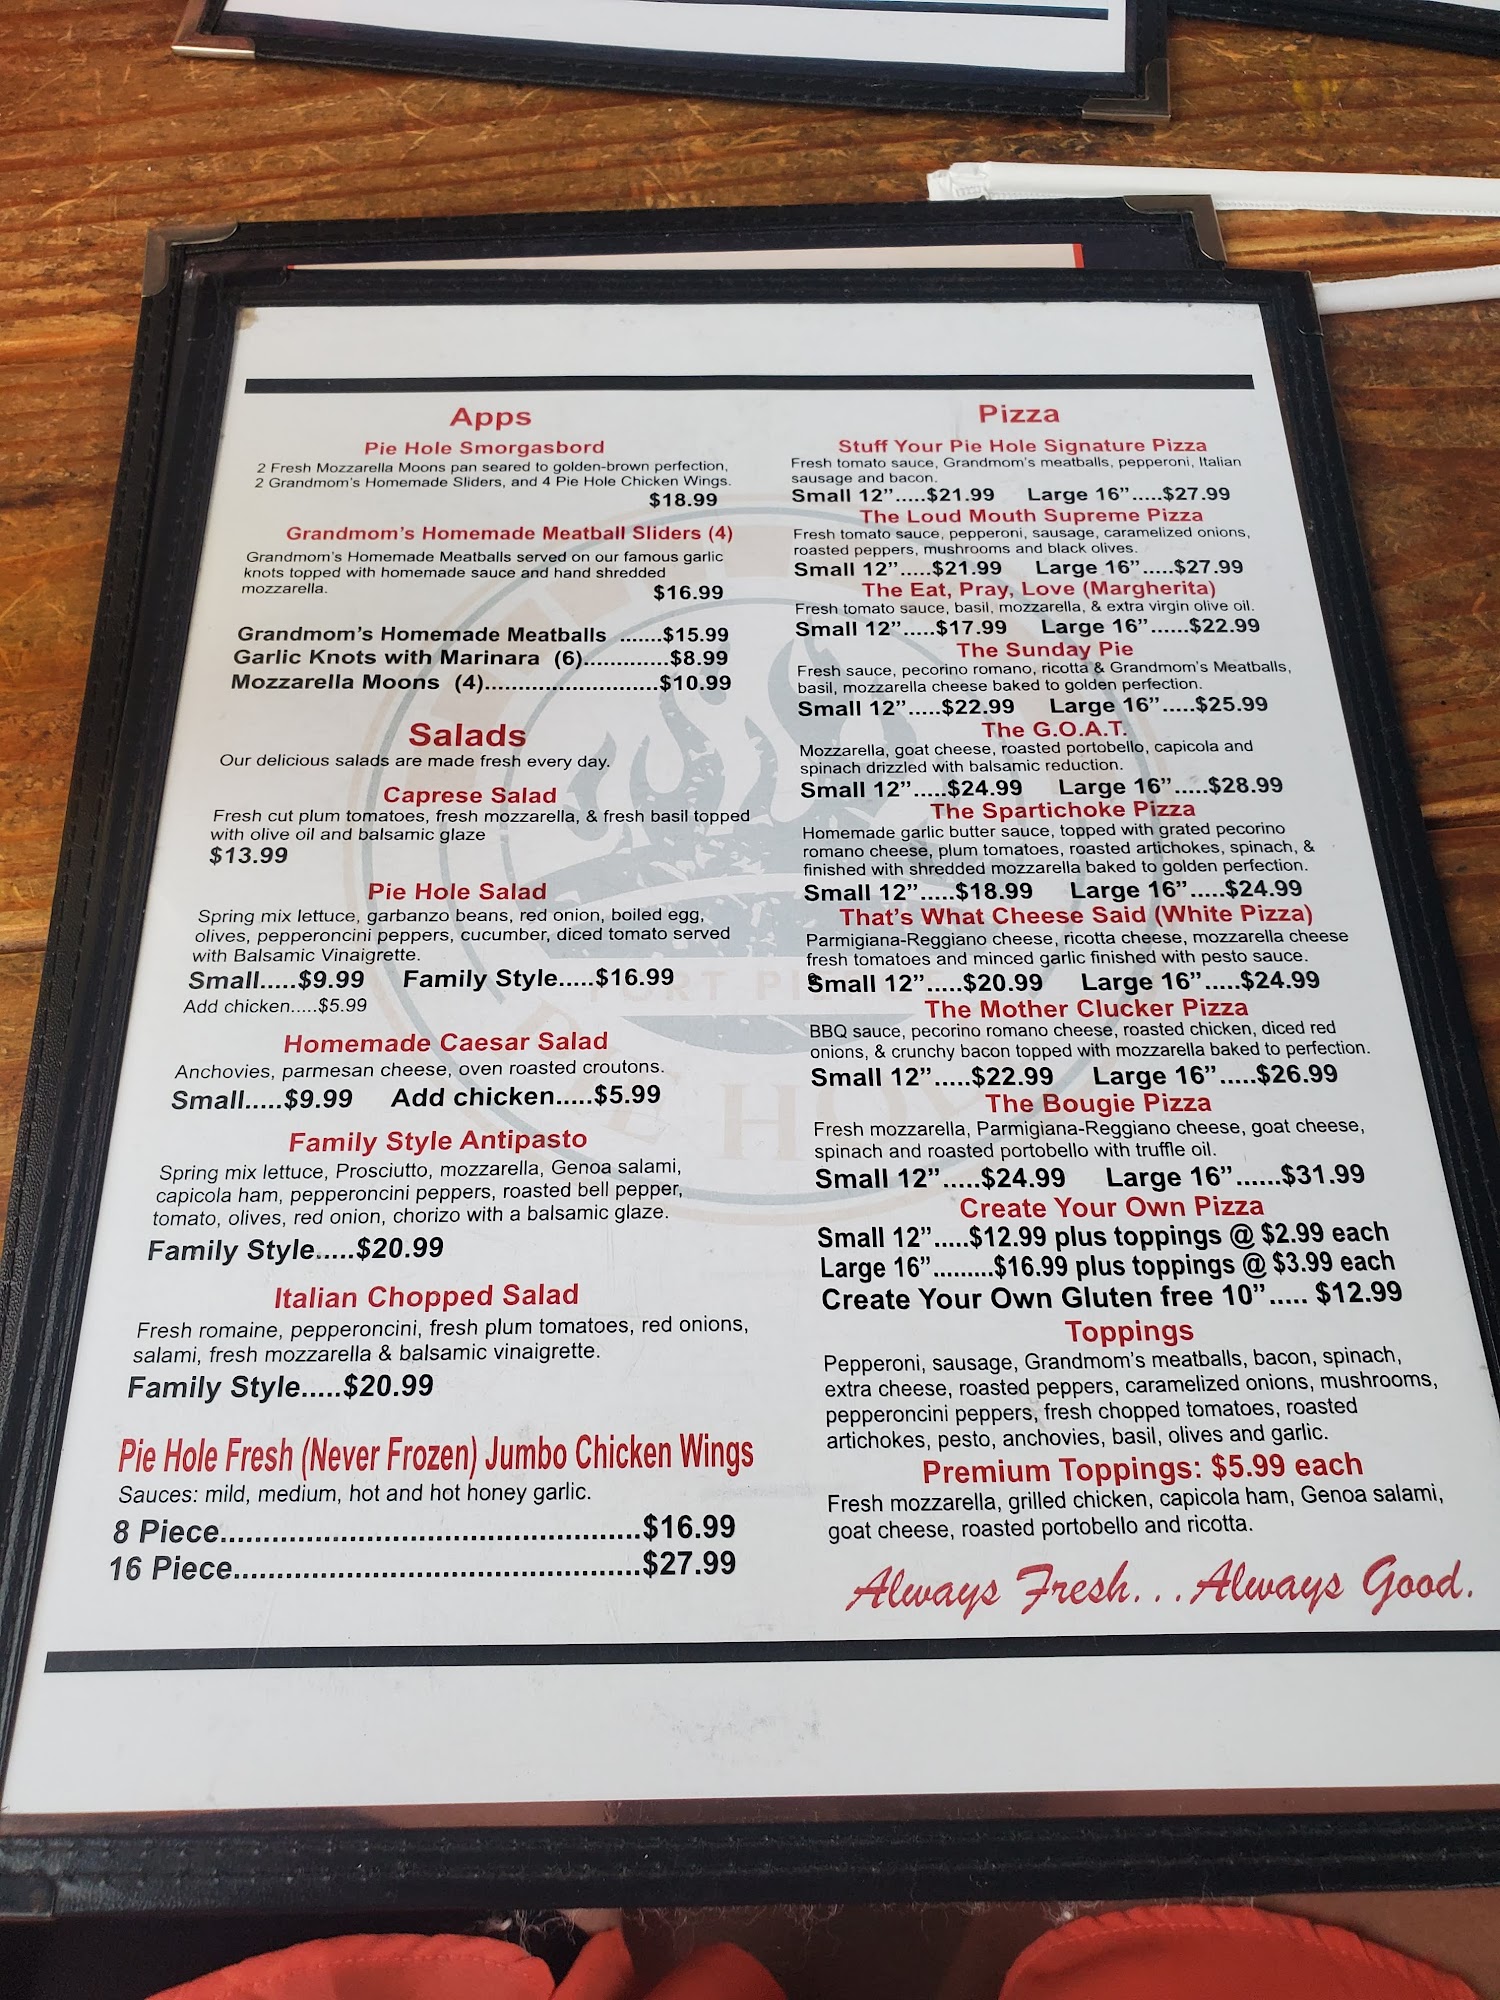 Apps
Pie Hole Smorgasbord
2 Fresh Mozzarella Moons pan seared to golden-brown perfection,
2 Grandmom's Homemade Sliders, and 4 Pie Hole Chicken Wings.
$18.99
Grandmom's Homemade Meatball Sliders (4)
Grandmom's Homemade Meatballs served on our famous garlic
knots topped with homemade sauce and hand shredded
mozzarella.
$16.99
Grandmom's Homemade Meatballs .......$15.99
Garlic Knots with Marinara (6).............$8.99
Mozzarella Moons (4)..........................$10.99
Salads
Our delicious salads are made fresh every day.
Caprese Salad
Fresh cut plum tomatoes, fresh mozzarella, & fresh basil topped
with olive oil and balsamic glaze
$13.99
Pie Hole Salad
Spring mix lettuce, garbanzo beans, red onion, boiled egg,
olives, pepperoncini peppers, cucumber, diced tomato served
with Balsamic Vinaigrette.
Small.....$9.99 Family Style.....$16.99
Add chicken.....$5.99
Homemade Caesar Salad
Anchovies, parmesan cheese, oven roasted croutons.
Small.....$9.99 Add chicken.....$5.99
Family Style Antipasto
Spring mix lettuce, Prosciutto, mozzarella, Genoa salami,
capicola ham, pepperoncini peppers, roasted bell pepper,
tomato, olives, red onion, chorizo with a balsamic glaze.
Family Style.....$20.99
Italian Chopped Salad
Fresh romaine, pepperoncini, fresh plum tomatoes, red onions,
salami, fresh mozzarella & balsamic vinaigrette.
Family Style.....$20.99
Pie Hole Fresh (Never Frozen) Jumbo Chicken Wings
Sauces: mild, medium, hot and hot honey garlic.
8 Piece.................................................$16.99
16 Piece...............................................$27.99
Pizza
Stuff Your Pie Hole Signature Pizza
Fresh tomato sauce, Grandmom's meatballs, pepperoni, Italian
sausage and bacon.
Small 12”.....$21.99 Large 16”.....$27.99
The Loud Mouth Supreme Pizza
Fresh tomato sauce, pepperoni, sausage, caramelized onions,
roasted peppers, mushrooms and black olives.
Small 12”.....$21.99 Large 16”.....$27.99
The Eat, Pray, Love (Margherita)
Fresh tomato sauce, basil, mozzarella, & extra virgin olive oil.
Small 12”.....$17.99 Large 16”......$22.99
The Sunday Pie
Fresh sauce, pecorino romano, ricotta & Grandmom's Meatballs,
basil, mozzarella cheese baked to golden perfection.
Small 12”.....$22.99 Large 16”.....$25.99
The G.O.A.T.
Mozzarella, goat cheese, roasted portobello, capicola and
spinach drizzled with balsamic reduction.
Small 12”.....$24.99 Large 16”.....$28.99
The Spartichoke Pizza
Homemade garlic butter sauce, topped with grated pecorino
romano cheese, plum tomatoes, roasted artichokes, spinach, &
finished with shredded mozzarella baked to golden perfection.
Small 12”.....$18.99 Large 16”.....$24.99
That's What Cheese Said (White Pizza)
Parmigiana-Reggiano cheese, ricotta cheese, mozzarella cheese
fresh tomatoes and minced garlic finished with pesto sauce.
Small 12”.....$20.99 Large 16”.....$24.99
The Mother Clucker Pizza
BBQ sauce, pecorino romano cheese, roasted chicken, diced red
onions, & crunchy bacon topped with mozzarella baked to perfection.
Small 12”.....$22.99 Large 16”.....$26.99
The Bougie Pizza
Fresh mozzarella, Parmigiana-Reggiano cheese, goat cheese,
spinach and roasted portobello with truffle oil.
Small 12”.....$24.99 Large 16”......$31.99
Create Your Own Pizza
Small 12”.....$12.99 plus toppings @ $2.99 each
Large 16”.........$16.99 plus toppings @ $3.99 each
Create Your Own Gluten free 10”..... $12.99
Toppings
Pepperoni, sausage, Grandmom's meatballs, bacon, spinach,
extra cheese, roasted peppers, caramelized onions, mushrooms,
pepperoncini peppers, fresh chopped tomatoes, roasted
artichokes, pesto, anchovies, basil, olives and garlic.
Premium Toppings: $5.99 each
Fresh mozzarella, grilled chicken, capicola ham, Genoa salami,
goat cheese, roasted portobello and ricotta.
Always Fresh...Always Good.
FORT PIERCE
PIE HOLE